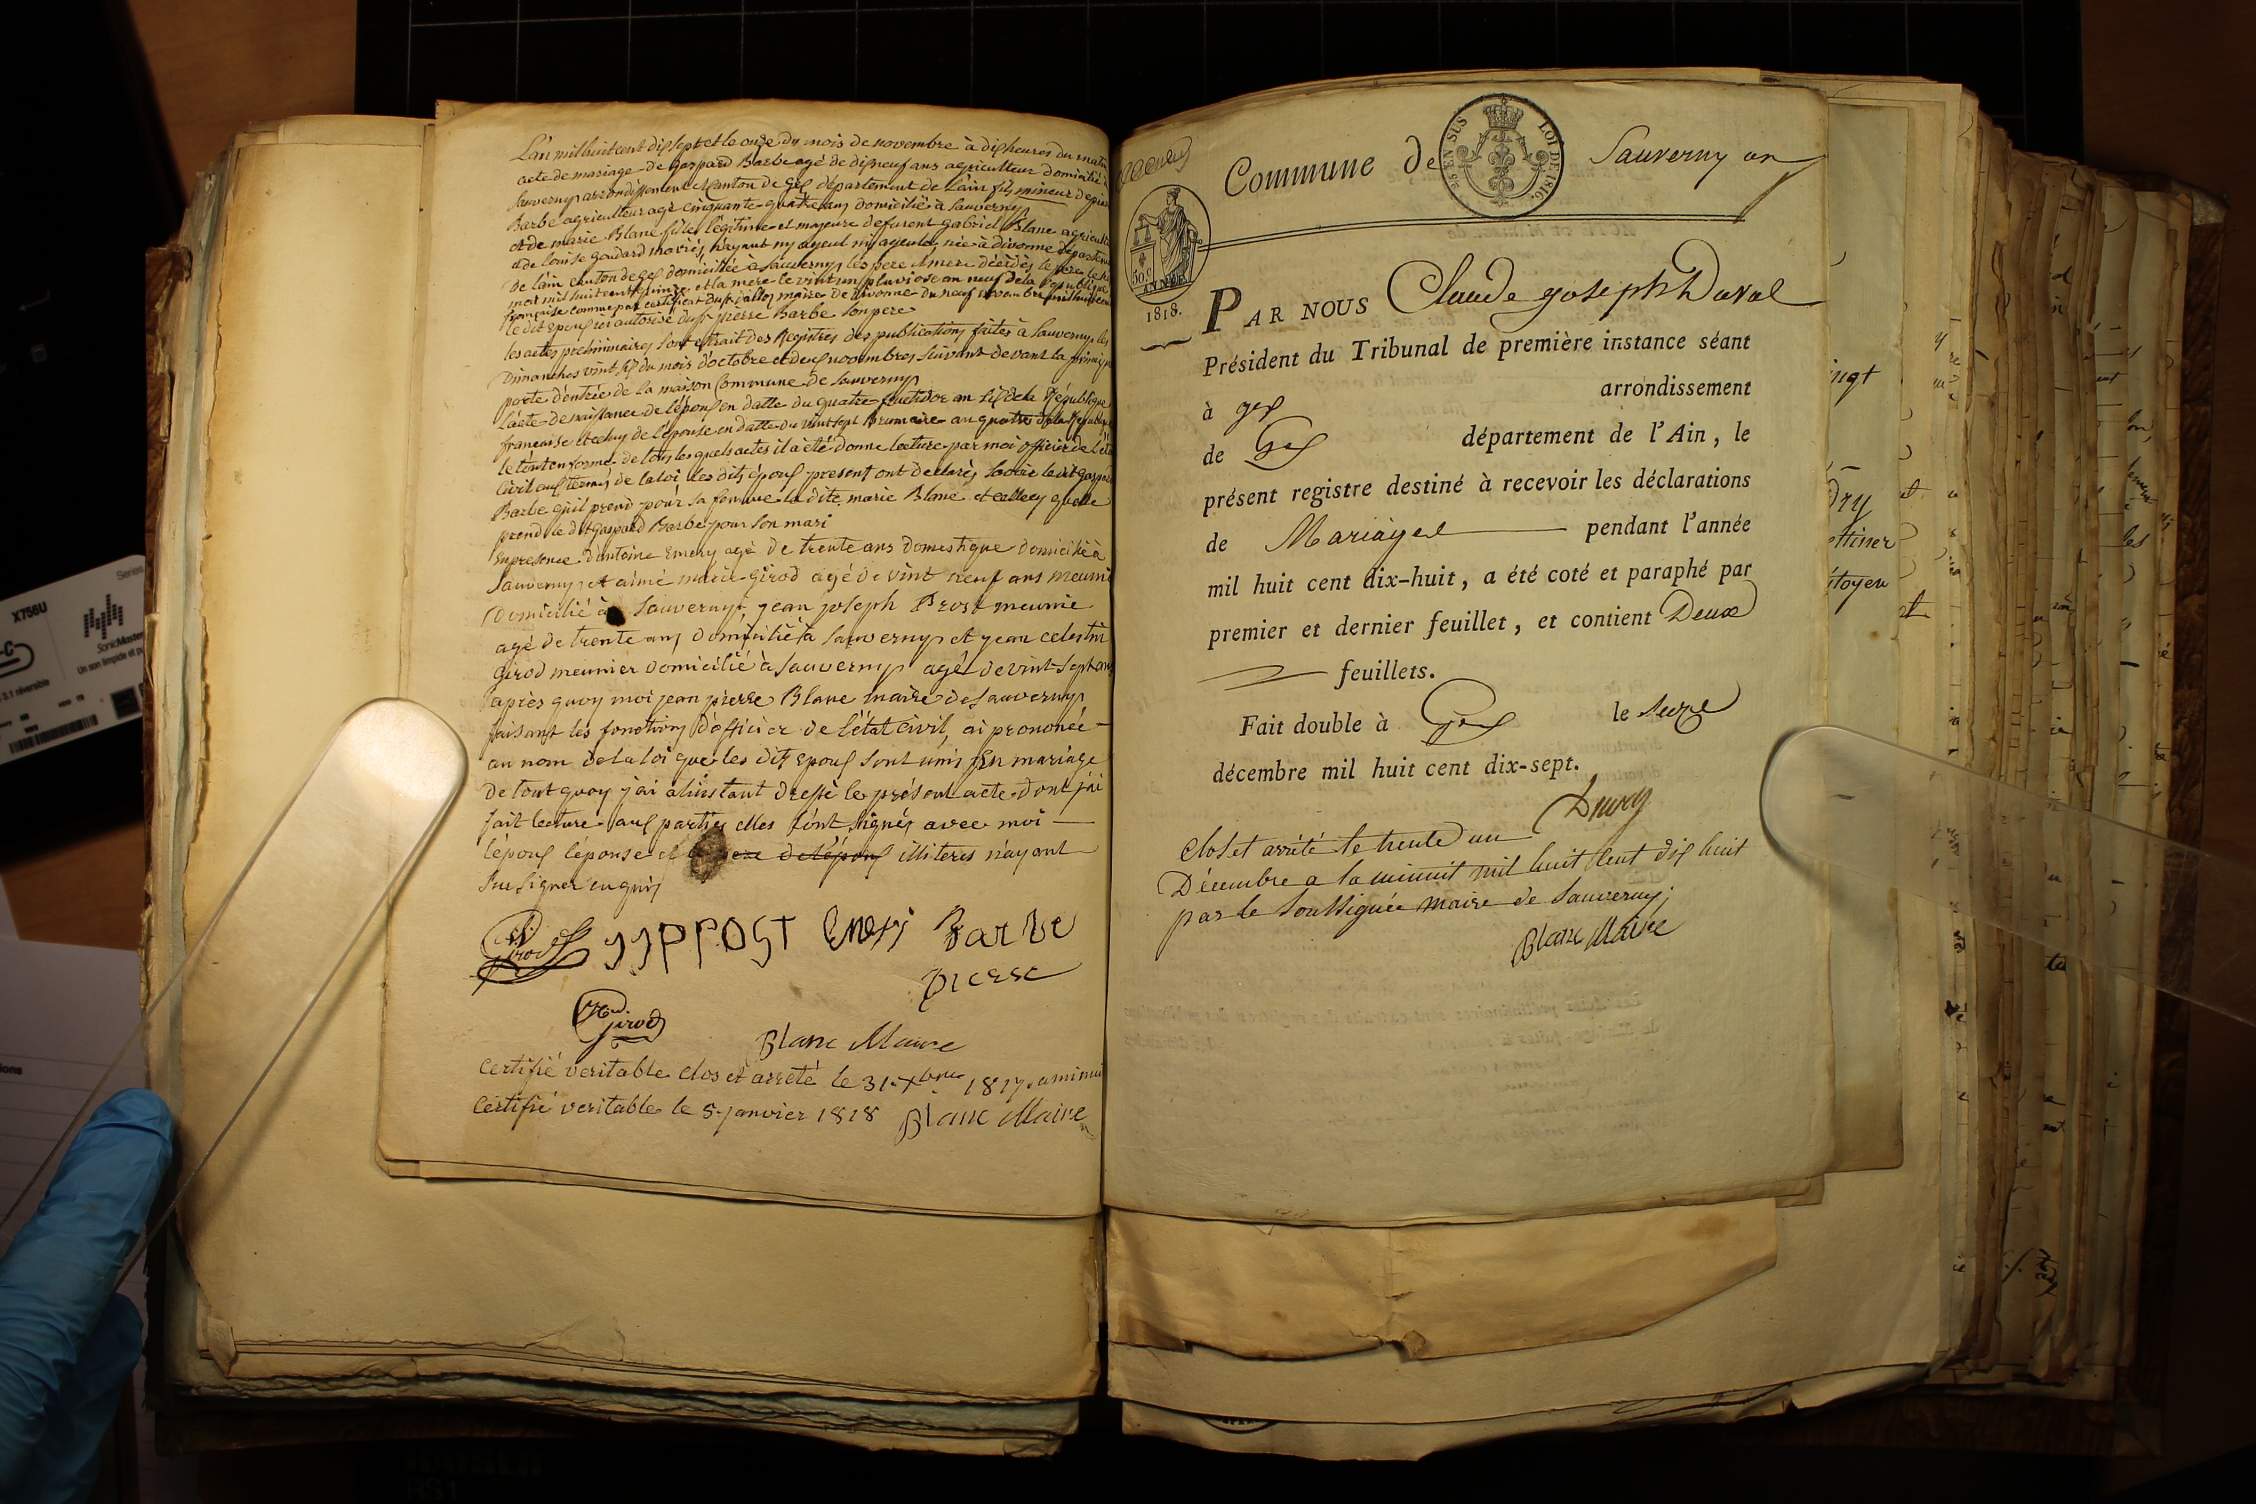 L'an mil huit cent dix sept et le onze du mois de novembre à dix heures du matin
acte de mariage de Gaspard Barbe agé de dix neuf ans agriculteur domicilié à
Sauverny arrondissement et canton de Gex département de L'ain fils mineur de pierre
Barbe agriculteur agé cinquante quatre ans domicilié à Sauverny
et de marie Blanc fille légitime et majeure de furent Gabriel Blanc agriculteur
et de louise Goudard mariés n'ayant ny ayeul ny ayeule, née à divonne département
de l'ain canton de Gex domiciliée à Sauverny, les pere et mere décédés le pere le
mai mil huit cent quinze et la mere le vint un pluviose an neuf de la République
française comme par certificat du sr jallos maire de divonne du neuf novembre
le dit Epoux ici autorisé du sr pierre Barbe son pere
les actes preliminaires sont extrait des Registres des publications faites à Sauverny les
Dimanches vint six du mois d'octobre et deux novembres suivant devant la principale
porte d'entrée de la maison Commune de Sauverny
l'acte de naissance de l'époux en datte du quatre fructidor an six de la République
française et celuy de l'épouse en datte du vint sept Brumaire an quatre de la République
le tout en forme de tous les quels actes il a été donné lecture par moi officier de l'état
Civil aux termes de la loi les dits époux present ont declarés savoir le dit Gaspard
Barbe qu'il prend pour sa femme la dite marie Blanc et celle cy quelle
prend le dit Gaspard Barbe pour son mari
En presence d'antoine Emery agé de trente ans domestique domicilié à
Sauverny, et aimé marie Girod agé de vint neuf ans meunier
domicilié à Sauverny, jean joseph Prost meunie
agé de trente ans domicilié à Sauverny et jean celestin
Girod meunier domicilié à Sauverny agé de vint sept ans
après quoy moi jean pierre Blanc maire de Sauverny
faisant les fonctions d'officier de l'état Civil, ai prononcé
au nom de la loi que les dits Epoux sont unis En mariage
de tout quoy j'ai à l'instant dressé le présent acte dont j'ai
fait lecture aux parties elles l'ont signés avec moi
l'époux l'épouse et le pere de l'époux illiteres n'ayant
sue signer enquis
Girod JJPPOST Emeri Barbe
piere
Girod
Blanc Maire
Certifié veritable clos et arrêté le 31 Xbre 1817 a minuit
Certifié veritable le 5 janvier 1818 Blanc Maire
Commune de Sauverny an
25 EN SUS LOI DE 1816.
50 C
ANNÉE
1818.
PAR NOUS Claude joseph Duval
Président du Tribunal de première instance séant
à gex arrondissement
de Gex département de l'Ain, le
présent registre destiné à recevoir les déclarations
de Mariages pendant l'année
mil huit cent dix-huit, a été coté et paraphé par
premier et dernier feuillet, et contient Deux
feuillets.
Fait double à Gex le seize
décembre mil huit cent dix-sept.
Duval
Clos et arrêté le trente un
Décembre a la minuit mil huit Cent dix huit
par le soussignée maire de Sauverny;
Blanc Maire
ingt
Dry
ettiner
itoyen
X756U
Series
SonicMaster